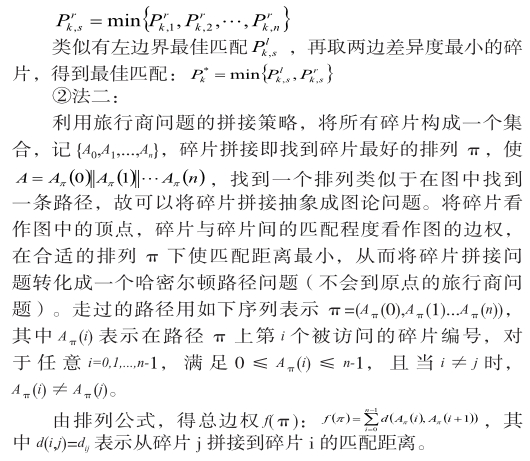 P^r_{k,s} = min{P^r_{k,1}, P^r_{k,2}, ···, P^r_{k,n}}
类似有左边界最佳匹配 P^l_{k,s} ，再取两边差异度最小的碎
片，得到最佳匹配： P^*_k = min{P^l_{k,s}, P^r_{k,s}}
②法二：
利用旅行商问题的拼接策略，将所有碎片构成一个集
合，记 {A_0,A_1,...,A_n}，碎片拼接即找到碎片最好的排列 π，使
A = A_π(0)‖A_π(1)‖···A_π(n)，找到一个排列类似于在图中找到
一条路径，故可以将碎片拼接抽象成图论问题。将碎片看
作图中的顶点，碎片与碎片间的匹配程度看作图的边权，
在合适的排列 π 下使匹配距离最小，从而将碎片拼接问
题转化成一个哈密尔顿路径问题（不会到原点的旅行商问
题）。走过的路径用如下序列表示 π=(A_π(0),A_π(1)...A_π(n))，
其中 A_π(i) 表示在路径 π 上第 i 个被访问的碎片编号，对
于任意 i=0,1,...,n-1，满足 0 ≤ A_π(i) ≤ n-1，且当 i ≠ j 时，
A_π(i) ≠ A_π(j)。
由排列公式，得总边权 f(π)： f(π)=∑_{i=0}^{n-1} d(A_π(i),A_π(i+1))，其
中 d(i,j)=d_{ij} 表示从碎片 j 拼接到碎片 i 的匹配距离。